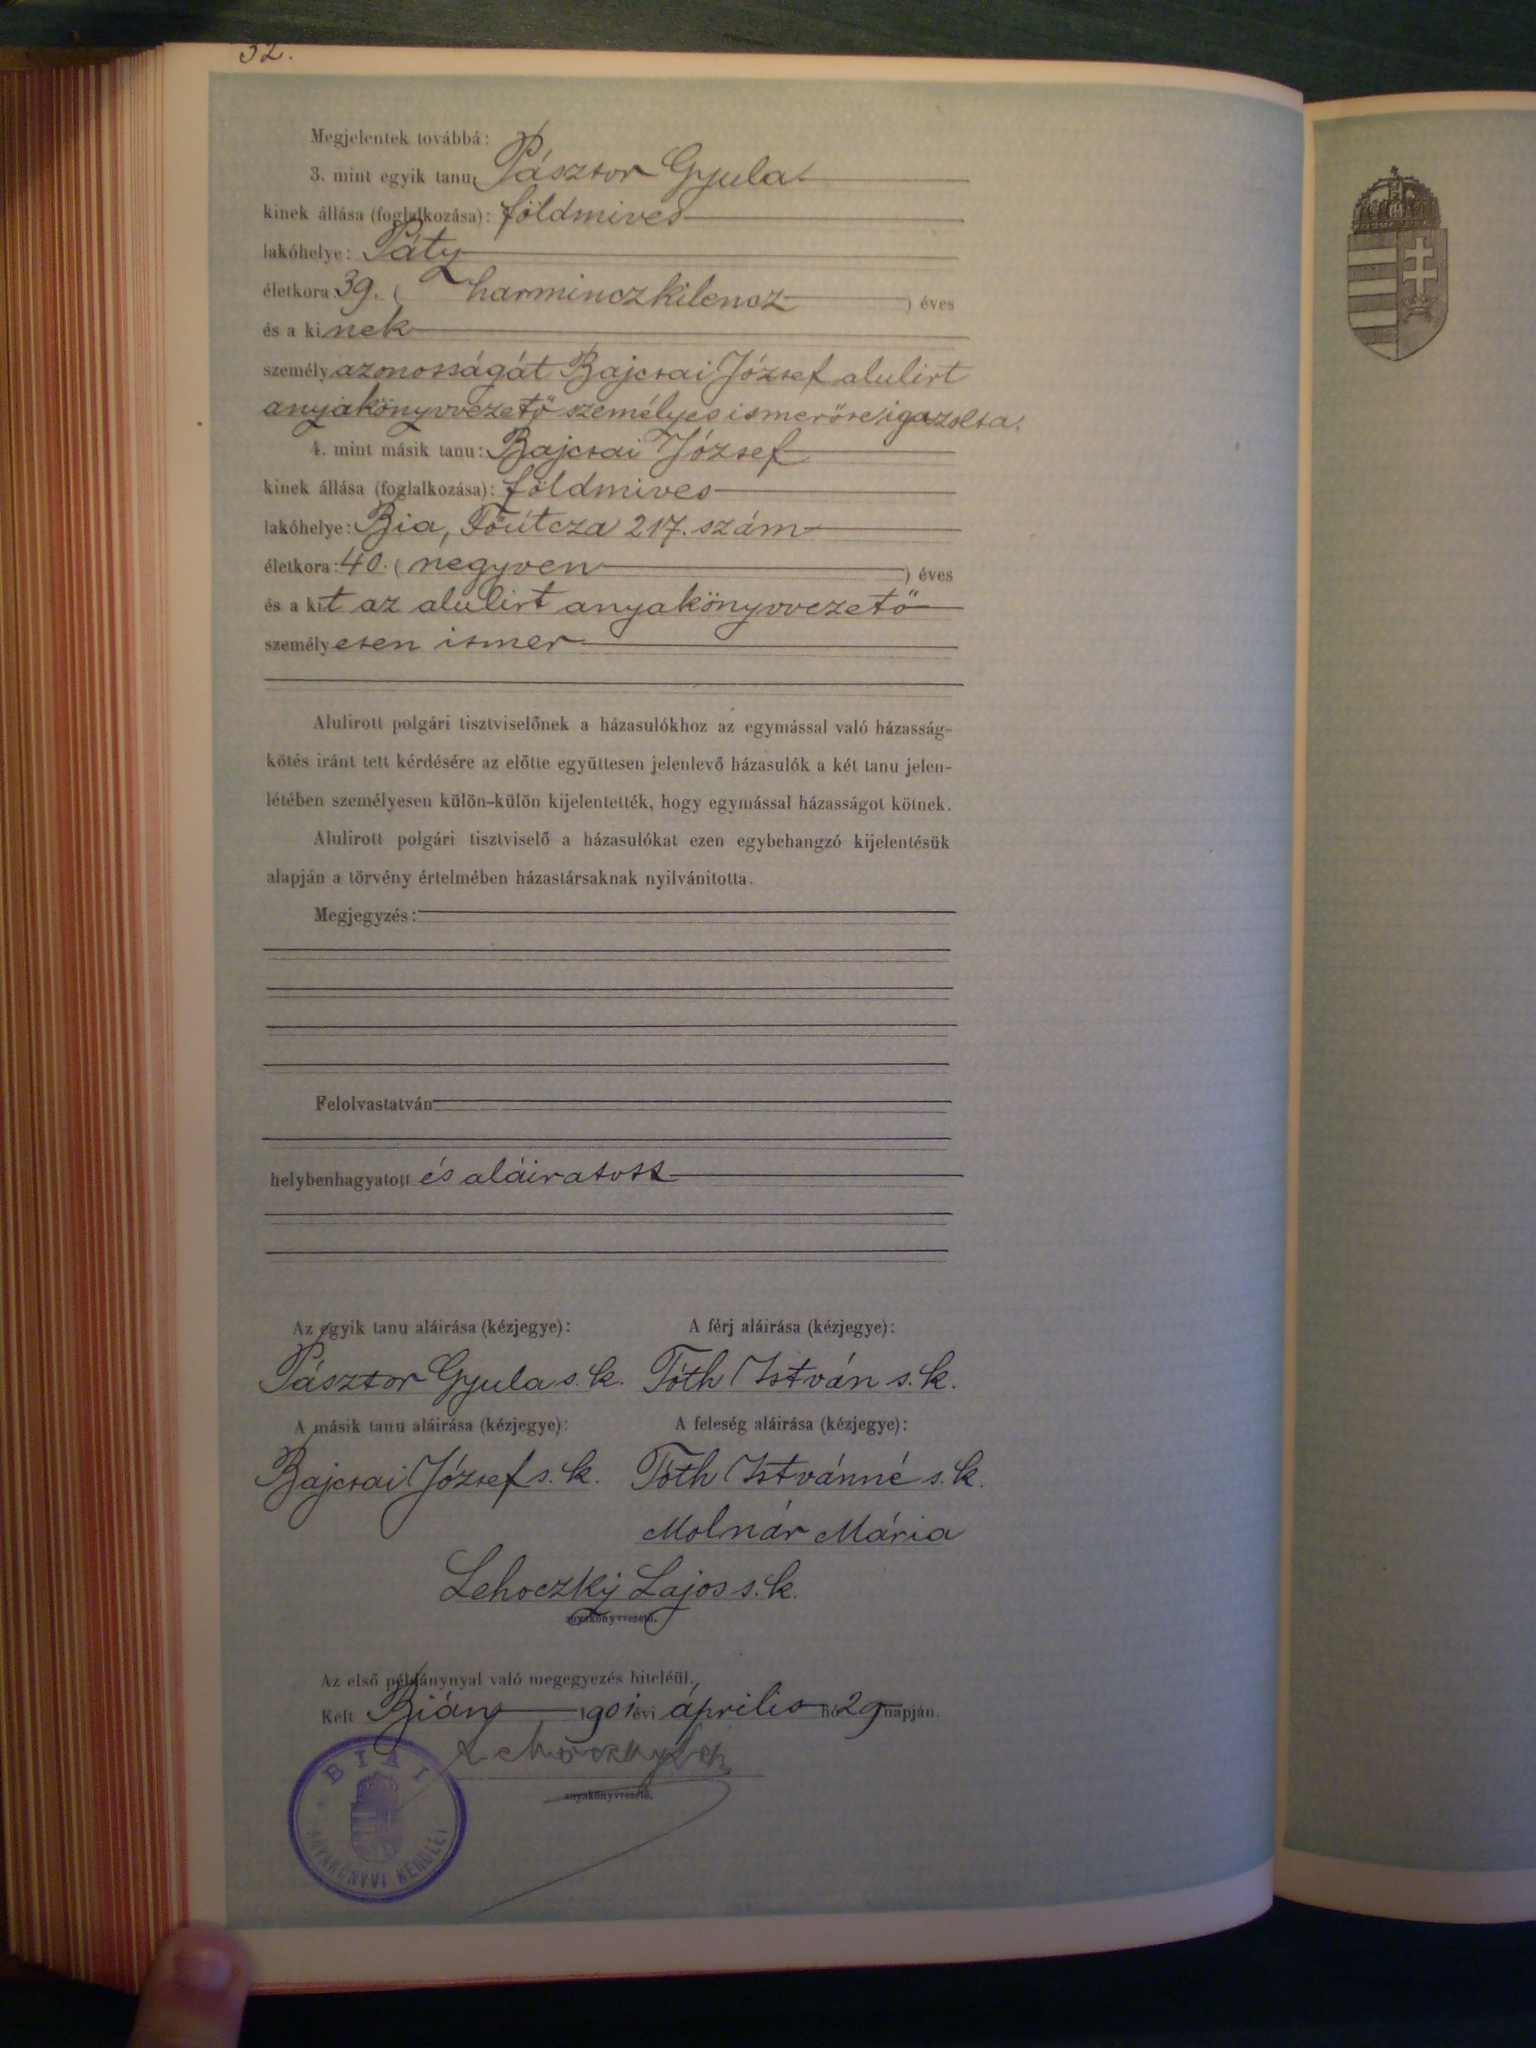 32.
Megjelentek továbbá:
3. mint egyik tanu: Pásztor Gyula
kinek állása (foglalkozása): földmives
lakóhelye: Páty
életkora: 39. ( harminczkilencz ) éves
és a kinek
személyazonosságát Bajcsai József alulirt
anyakönyvvezető személyes ismerőse igazolta.
4. mint másik tanu: Bajcsai József
kinek állása (foglalkozása): földmives
lakóhelye: Bia, Főútcza 217. szám
életkora: 40. ( negyven ) éves
és a kit az alulirt anyakönyvvezető
személyesen ismer
Alulirott polgári tisztviselőnek a házasulókhoz az egymással való házasság-
kötés iránt tett kérdésére az előtte együttesen jelenlevő házasulók a két tanu jelen-
létében személyesen külön-külön kijelentették, hogy egymással házasságot kötnek.
Alulirott polgári tisztviselő a házasulókat ezen egybehangzó kijelentésük
alapján a törvény értelmében házastársaknak nyilvánitotta.
Megjegyzés:
Felolvastatván
helybenhagyatott és aláiratott
Az egyik tanu aláirása (kézjegye): A férj aláirása (kézjegye):
Pásztor Gyula s. k. Tóth István s. k.
A másik tanu aláirása (kézjegye): A feleség aláirása (kézjegye):
Bajcsai József s. k. Tóth Istvánné s. k.
Molnár Mária
Lehoczky Lajos s. k.
anyakönyvvezető.
Az első példánynyal való megegyezés hiteléül.
Kelt Bián 1901 évi április hó 29 napján.
anyakönyvvezető.
BIAI
ANYAKÖNYVI KERÜLET